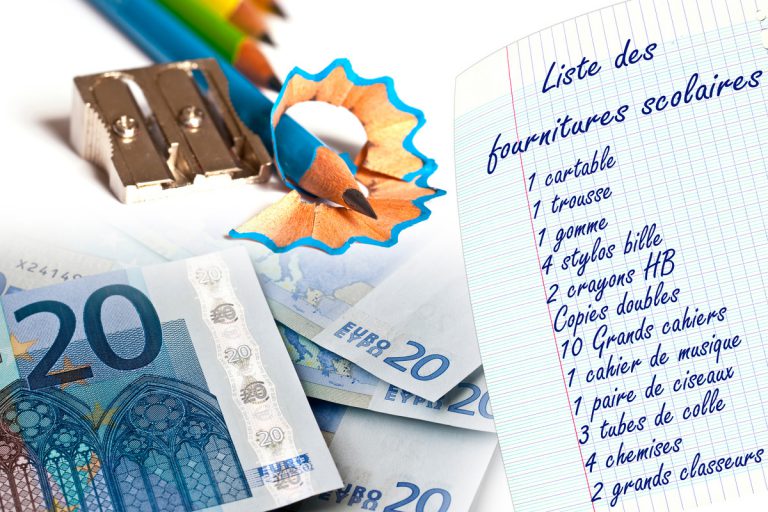 Liste des
fournitures scolaires
1 cartable
1 trousse
1 gomme
4 stylos bille
2 crayons HB
Copies doubles
10 Grands cahiers
1 cahier de musique
1 paire de ciseaux
3 tubes de colle
4 chemises
2 grands classeurs
X24149
20
20
20
20
20
EURO
ΕΥΡΩ
20
20
EURO
ΕΥΡΩ
20